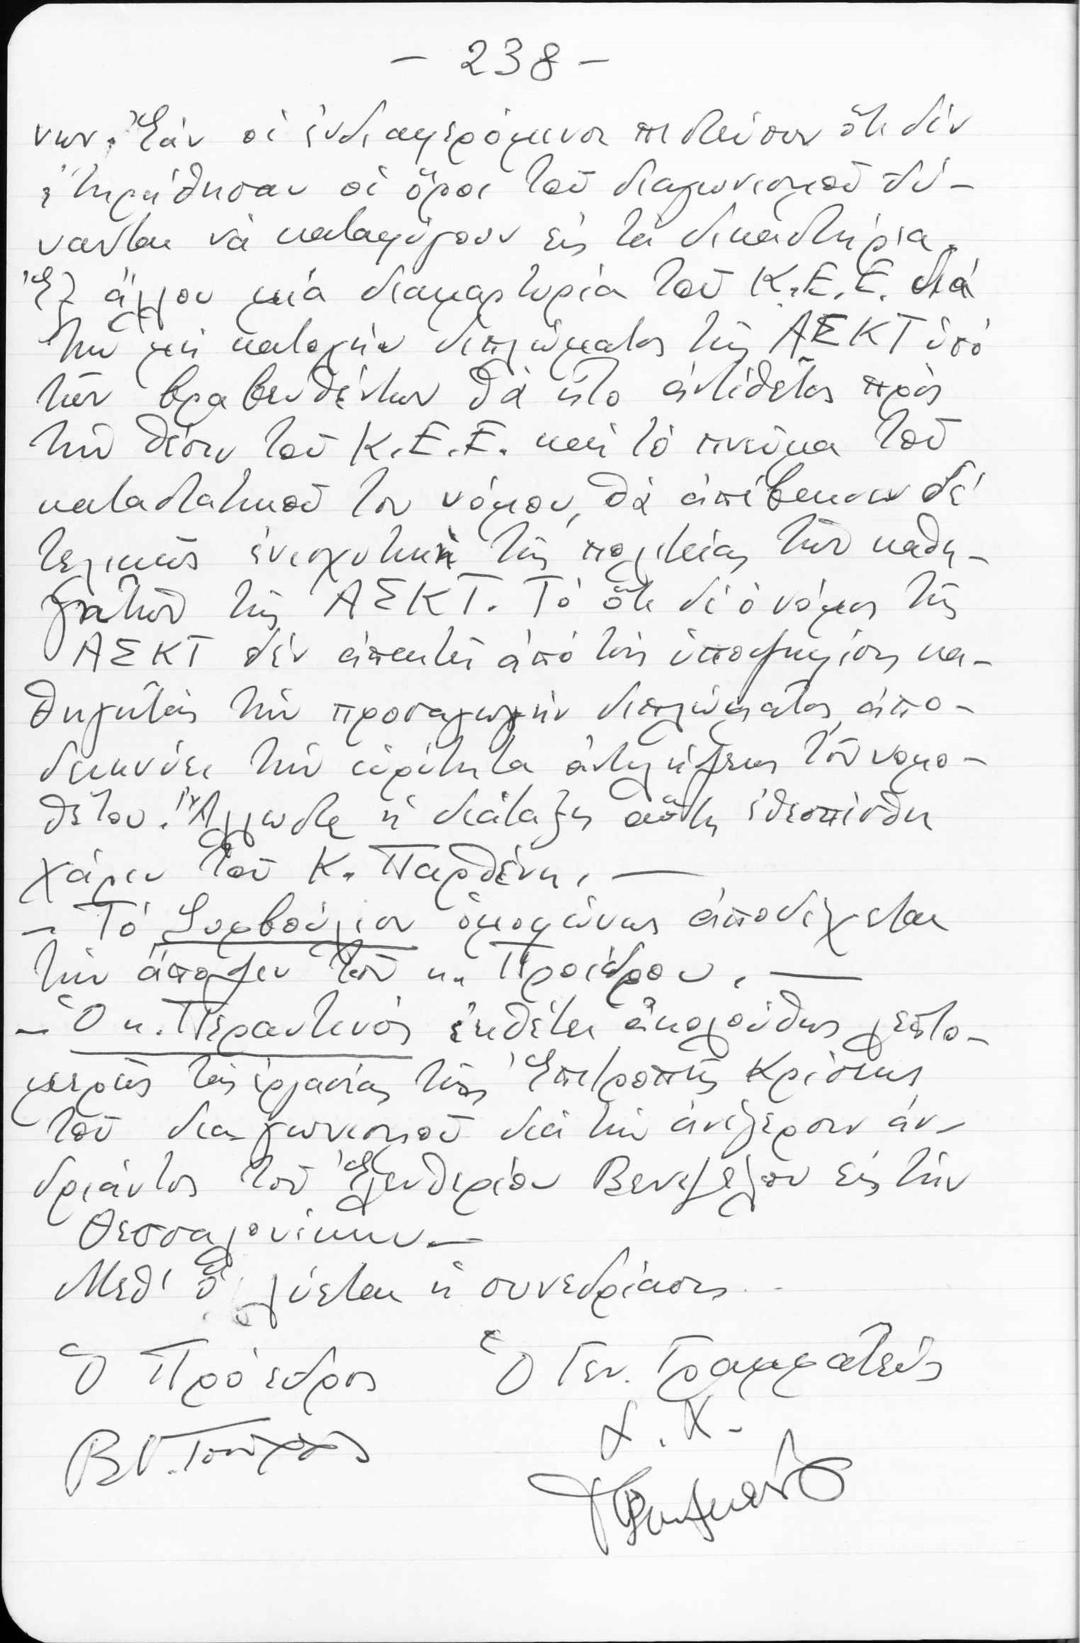 - 238 -
νων. Ἐάν οἱ ἐνδιαφερόμενοι πιστεύουν ὅτι δέν
ἐτηρήθησαν οἱ ὅροι τοῦ διαγωνισμοῦ δύ-
νανται νά καταφύγουν εἰς τά δικαστήρια.
Ἐξ ἄλλου μιά διαμαρτυρία τοῦ Κ.Ε.Ε. διά
τήν μή κατοχήν διπλώματος τῆς ΑΣΚΤ ὑπό
τῶν βραβευθέντων θά ἦτο ἀντίθετος πρός
τήν θέσιν τοῦ Κ.Ε.Ε. καί τό πνεῦμα τοῦ
καταστατικοῦ του νόμου, θά ἀπέβαινεν δέ
τελικῶς ἐνισχυτική τῆς πολιτείας τῶν καθη-
γητῶν τῆς ΑΣΚΤ. Τό ὅτι δέ ὁ νόμος τῆς
ΑΣΚΤ δέν ἀπαιτεῖ ἀπό τούς ὑποψηφίους κα-
θηγητάς τήν προσαγωγήν διπλώματος ἀπο-
δεικνύει τήν εὐρύτητα ἀντιλήψεως τοῦ νομο-
θέτου. Ἄλλωστε ἡ διάταξις αὕτη ἐθεσπίσθη
χάριν τοῦ Κ. Παρθένη. —
- Τό Συμβούλιον ὁμοφώνως ἀποδέχεται
τήν ἄποψιν τοῦ κ. Προέδρου. —
- Ὁ κ. Περαντινός ἐκθέτει ἀκολούθως λεπτο-
μερῶς τάς ἐργασίας τῆς Ἐπιτροπῆς Κρίσεως
τοῦ διαγωνισμοῦ διά τήν ἀνέγερσιν ἀν-
δριάντος τοῦ Ἐλευθερίου Βενιζέλου εἰς τήν
Θεσσαλονίκην. —
Μεθ' ὅ λύεται ἡ συνεδρίασις.
Ὁ Πρόεδρος
Ὁ Γεν. Γραμματεύς